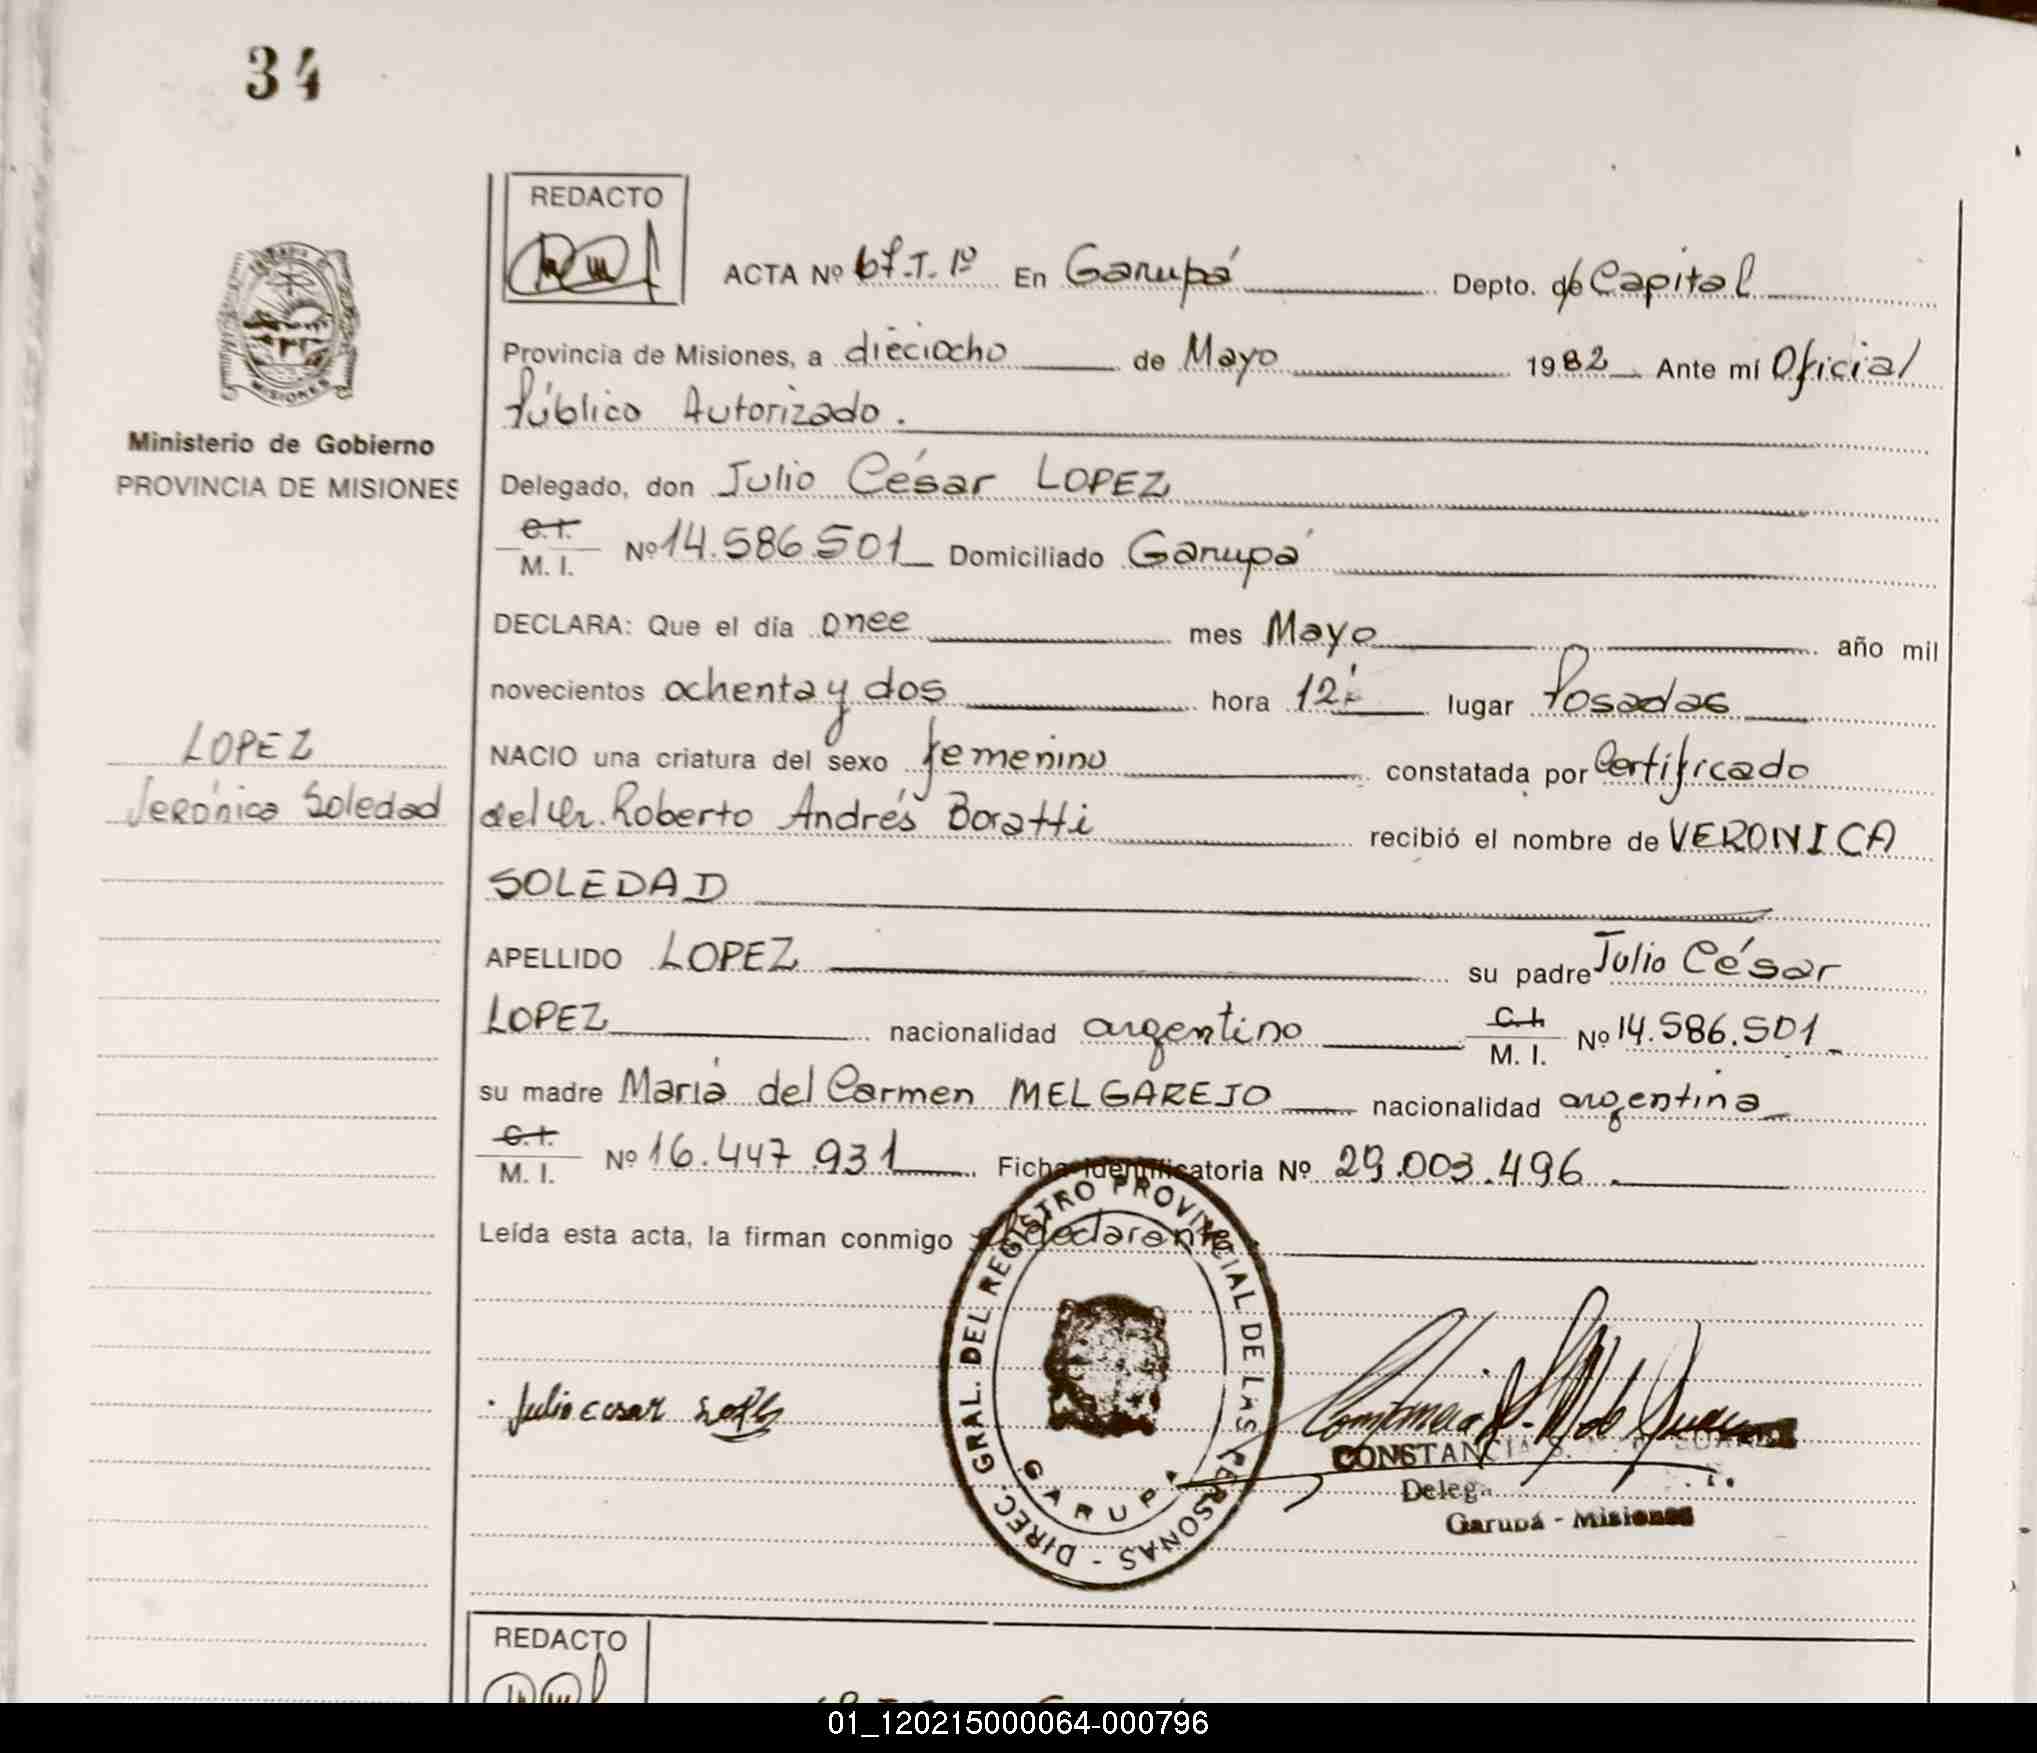 34
REDACTO
ACTA Nº 67.T.1º En Garupá Depto. de Capital
Provincia de Misiones, a dieciocho de Mayo 1982 Ante mí Oficial
Público Autorizado.
MISIONES
Ministerio de Gobierno
PROVINCIA DE MISIONES
Delegado, don Julio César LOPEZ
C.I.
M. I. Nº 14.586.501 Domiciliado Garupá
DECLARA: Que el día once mes Mayo año mil
novecientos ochenta y dos hora 12 lugar Posadas
LOPEZ
Verónica Soledad
NACIO una criatura del sexo femenino constatada por Certificado
del Dr. Roberto Andrés Boratti recibió el nombre de VERONICA
SOLEDAD
APELLIDO LOPEZ su padre Julio César
LOPEZ nacionalidad argentino C.I. M. I. Nº 14.586.501
su madre María del Carmen MELGAREJO nacionalidad argentina
C.I.
M. I. Nº 16.447.931 Ficha identificatoria Nº 29.003.496.
Leída esta acta, la firman conmigo el declarante
DIREC. GRAL. DEL REGISTRO PROVINCIAL DE LAS PERSONAS -
GARUPA
Julio cesar
CONSTANCIA S.
Deleg
Garupá - Misiones
REDACTO
01_120215000064-000796